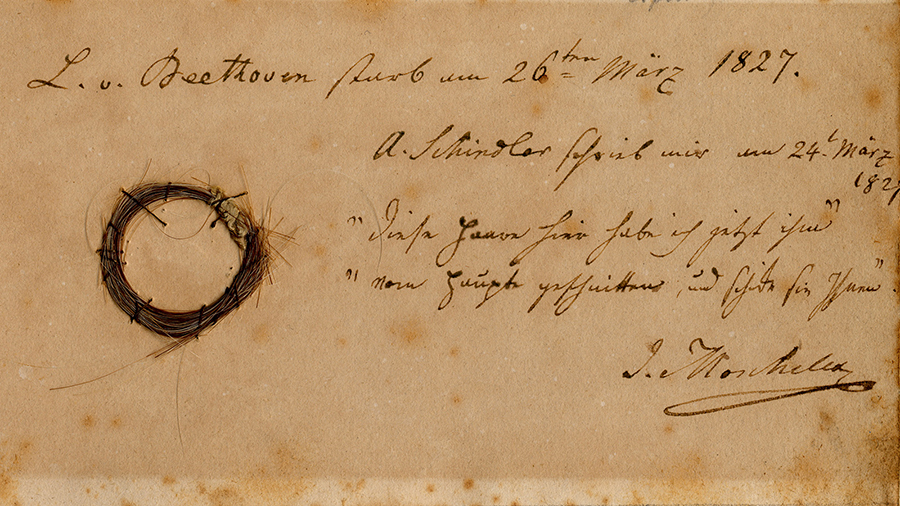 L. v. Beethoven starb am 26ten März 1827.
A. Schindler schrieb mir am 24t März
1827
"Diese Haare hier habe ich jetzt ihm"
"vom Haupte geschnitten und schicke sie Ihnen".
I. Moscheles